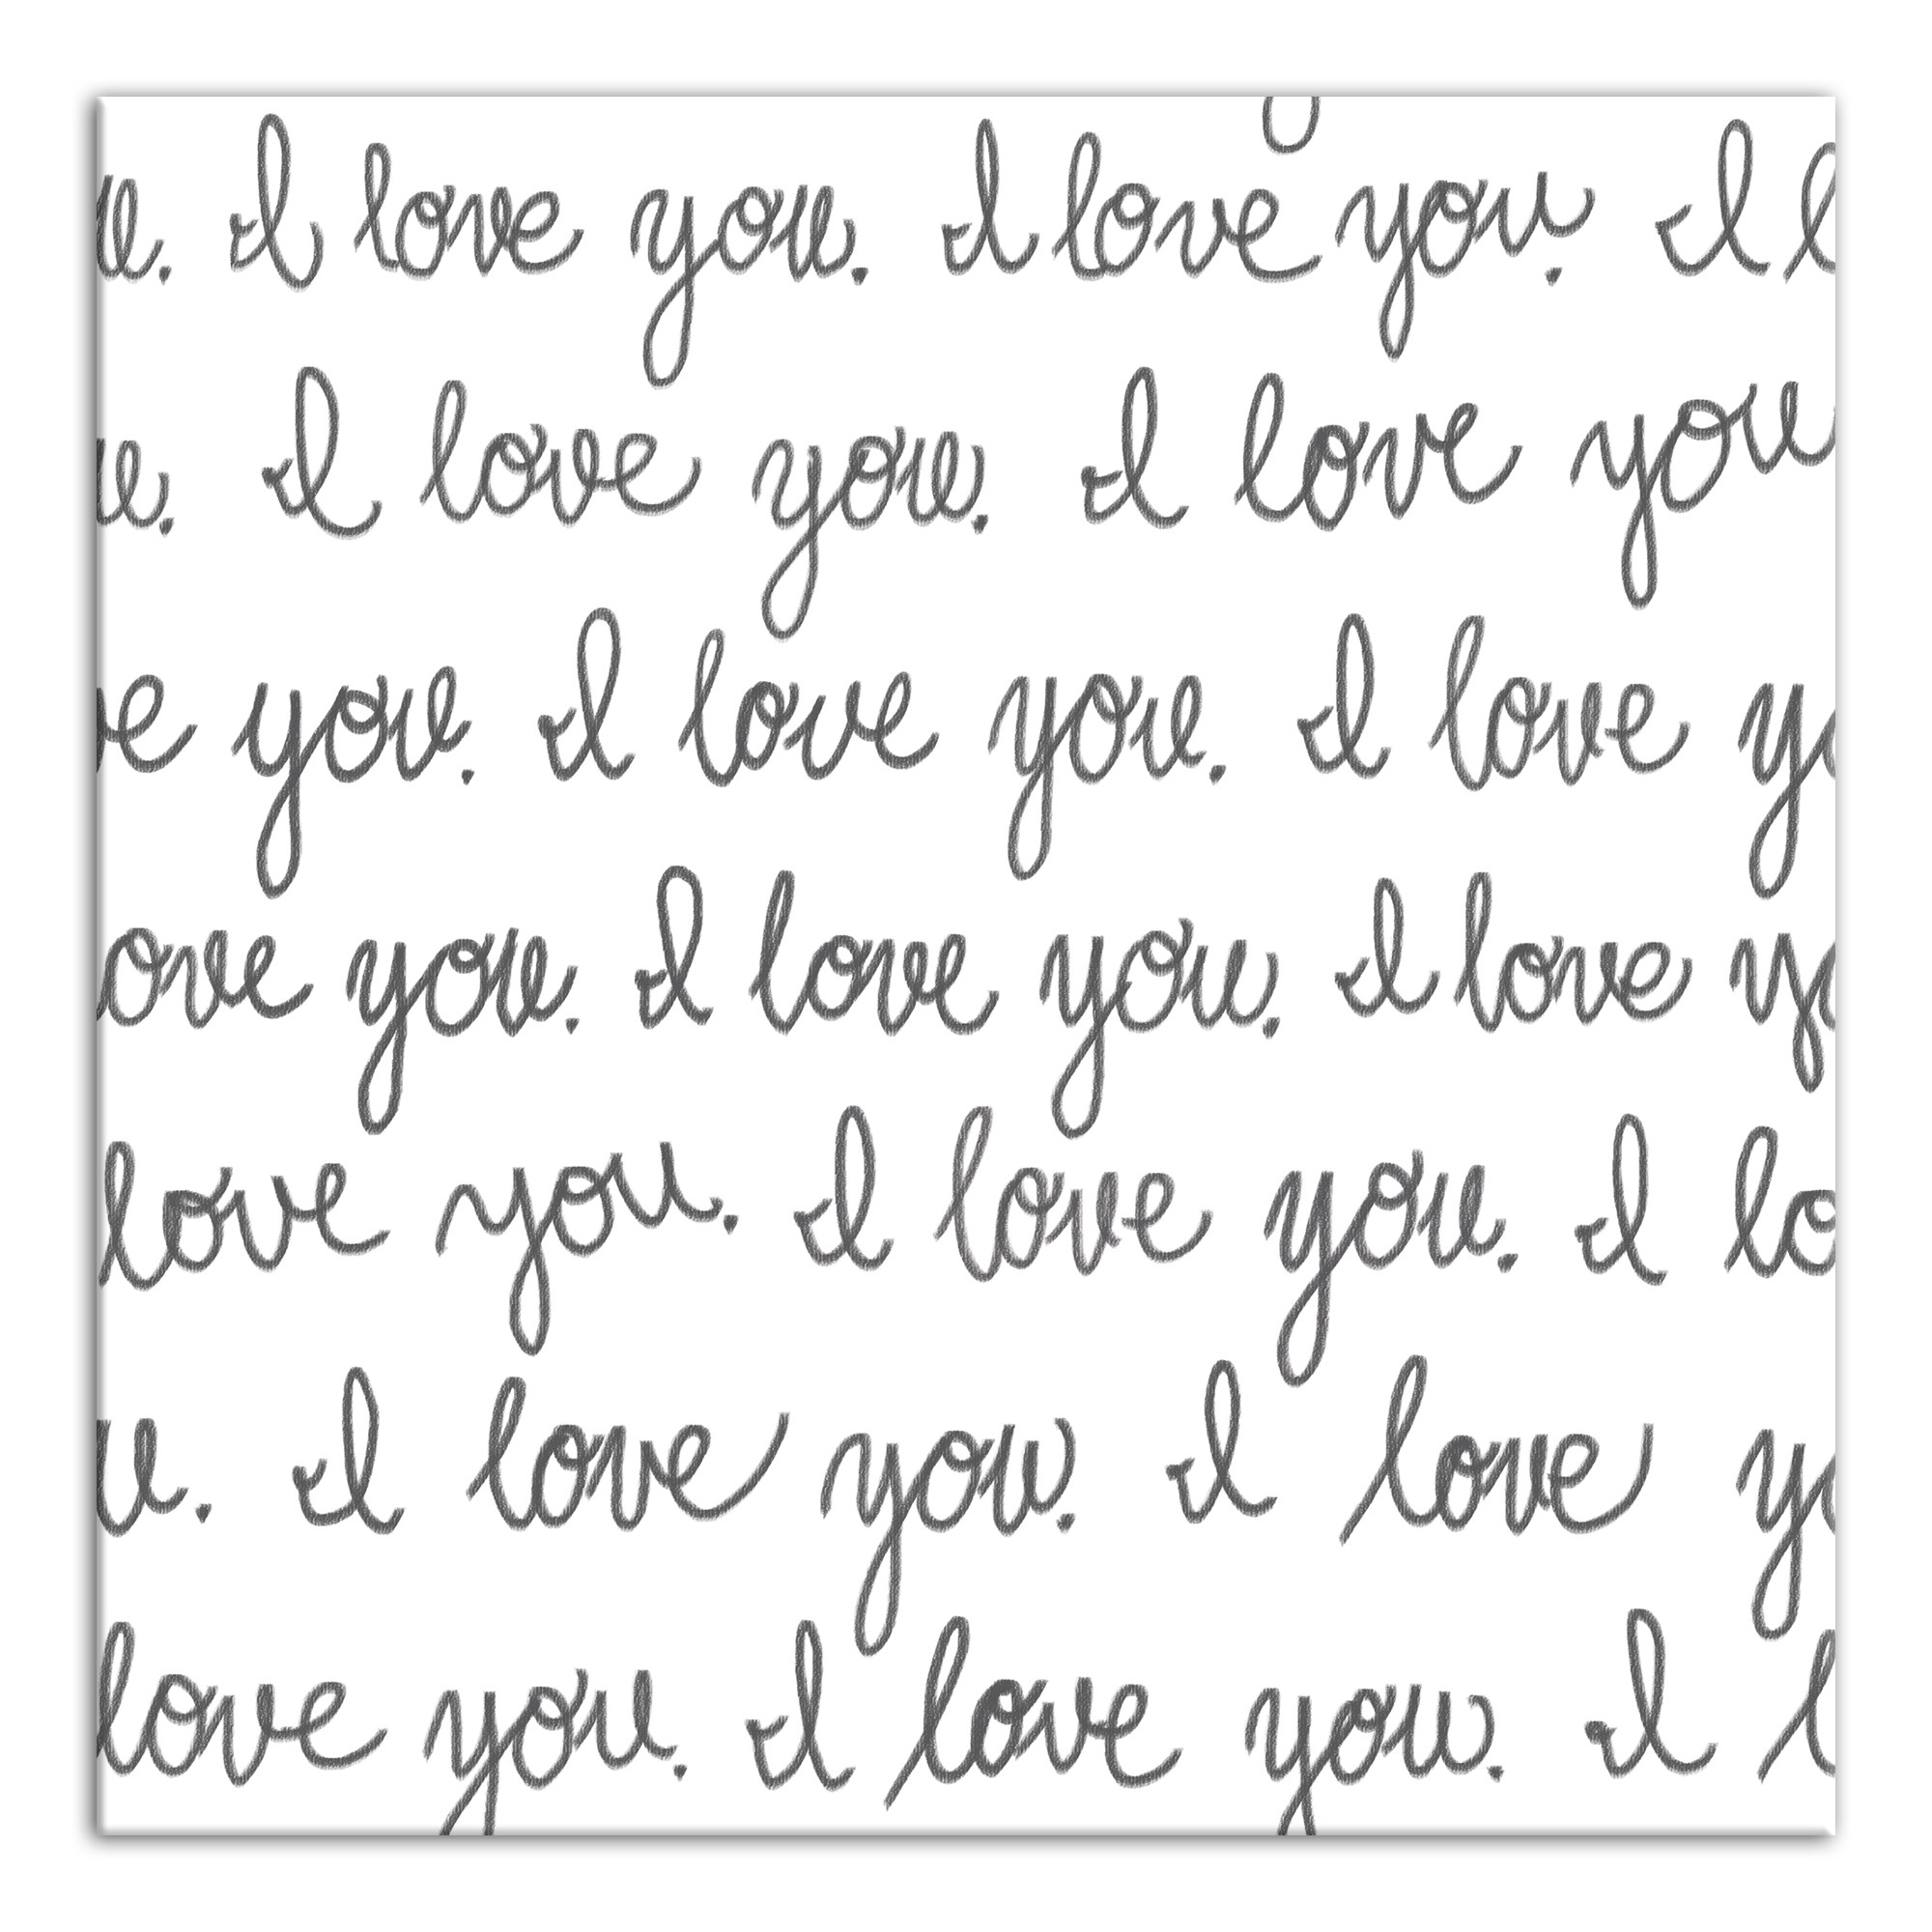 u. I love you. I love you. I l
u. I love you. I love you
e you. I love you. I love yo
ove you. I love you. I love yo
love you. I love you. I lo
u. I love you. I love yo
love you. I love you. I l